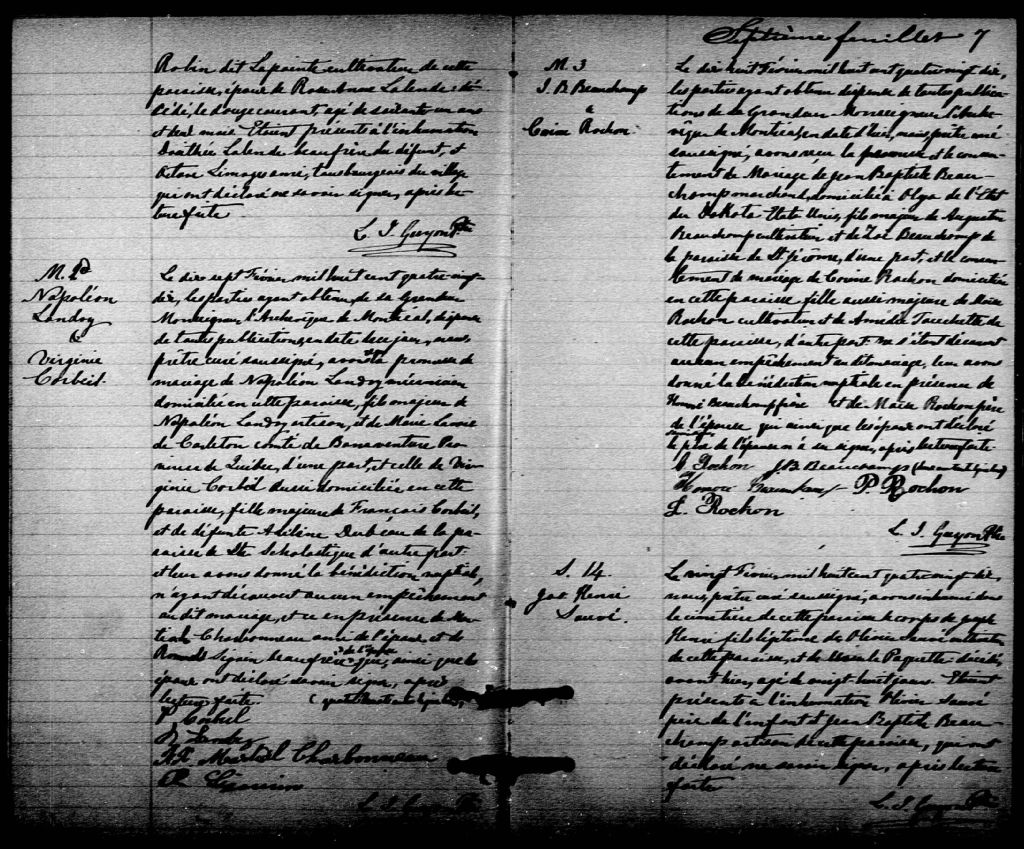 Robin dit Lapointe cultivateur de cette
paroisse, époux de Rose Anne Lalande dé-
cédé, le douze courant, agé de soixante un ans
et huit mois Etaient présents à l'inhumation
Dorithée Lalande beaufrère du défunt, et
Octave Limoges ami, tous bourgeois du village
qui ont déclaré ne savoir signer, après lec-
ture faite
L. J. Guyon Ptre
M. 2d
Napoléon
Landry
&
Virginie
Corbeil.
Le dix sept Février mil huit cent quatre vingt
dix, les parties ayant obtenu de sa Grandeur
Monseigneur l'Archevêque de Montréal, dispense
de toutes publications en date de ce jour, nous
prêtre curé soussigné, avons la promesse de
mariage de Napoléon Landry mécanicien
domicilié en cette paroisse, fils majeur de
Napoléon Landry artisan, et de Marie
de Carleton comté de Bonaventure Pro-
vince de Québec, d'une part, et celle de Vir-
ginie Corbeil aussi domiciliée en cette
paroisse, fille majeure de François Corbeil,
et de défunte Adeline Dubeau de la pa-
roisse de Ste Scholastique d'autre part
et leur avons donné la bénédiction nuptiale,
n'ayant découvert aucun empêchement
audit mariage, et ce en présence de Mar-
tial Charbonneau ami de l'époux et de
beaufrère de l'épouse qui, ainsi que les
époux ont déclaré savoir signer, après
lecture faite.
V Corbeil
N Landry
Martial Charbonneau
L. J. Guyon Ptre
Septième feuillet 7
M. 3
J. B. Beauchamp
&
Corine Rochon.
Le dix huit Février mil huit cent quatre vingt dix,
les parties ayant obtenu dispense de toutes publica-
tions de Sa Grandeur Monseigneur l'Arche-
vêque de Montréal en date d'hier, nous, prêtre curé
soussigné, avons reçu la promesse et le consen-
tement de Mariage de Jean Baptiste Beau-
champ marchand, domicilié à Olga de l'Etat
du Dakota Etats Unis, fils majeur de Augustin
Beauchamp cultivateur et de Zoé Beauchamp de
la paroisse de St Jérôme, d'une part, et le consen-
tement de mariage de Corine Rochon domiciliée
en cette paroisse, fille aussi majeure de Moïse
Rochon cultivateur et de Amédée de
cette paroisse, d'autre part ne s'étant découvert
aucun empêchement au dit mariage, leur avons
donné la bénédiction nuptiale en présence de
Honoré Beauchamp frère et de Moïse Rochon père
de l'épouse qui ainsi que les époux ont déclaré
le père de l'épouse n' signer, après lecture faite
C Rochon J B Beauchamp
Honoré Beauchamp P. Rochon
L. Rochon
L. J. Guyon Ptre
S. 14.
Jos Henri
Sauvé.
Le vingt Février, mil huit cent quatre vingt dix,
nous prêtre curé soussigné, avons inhumé dans
le cimetière de cette paroisse le corps de Joseph
Henri fils légitime de Olivier Sauvé
de cette paroisse, et de Paquette décédé,
avant hier, agé de vingt huit jours Etaient
présents à l'inhumation Olivier Sauvé
père de l'enfant et Jean Baptiste Beau-
champ artisan de cette paroisse, qui ont
déclaré ne savoir signer, après lecture
faite
L. J. Guyon Ptre